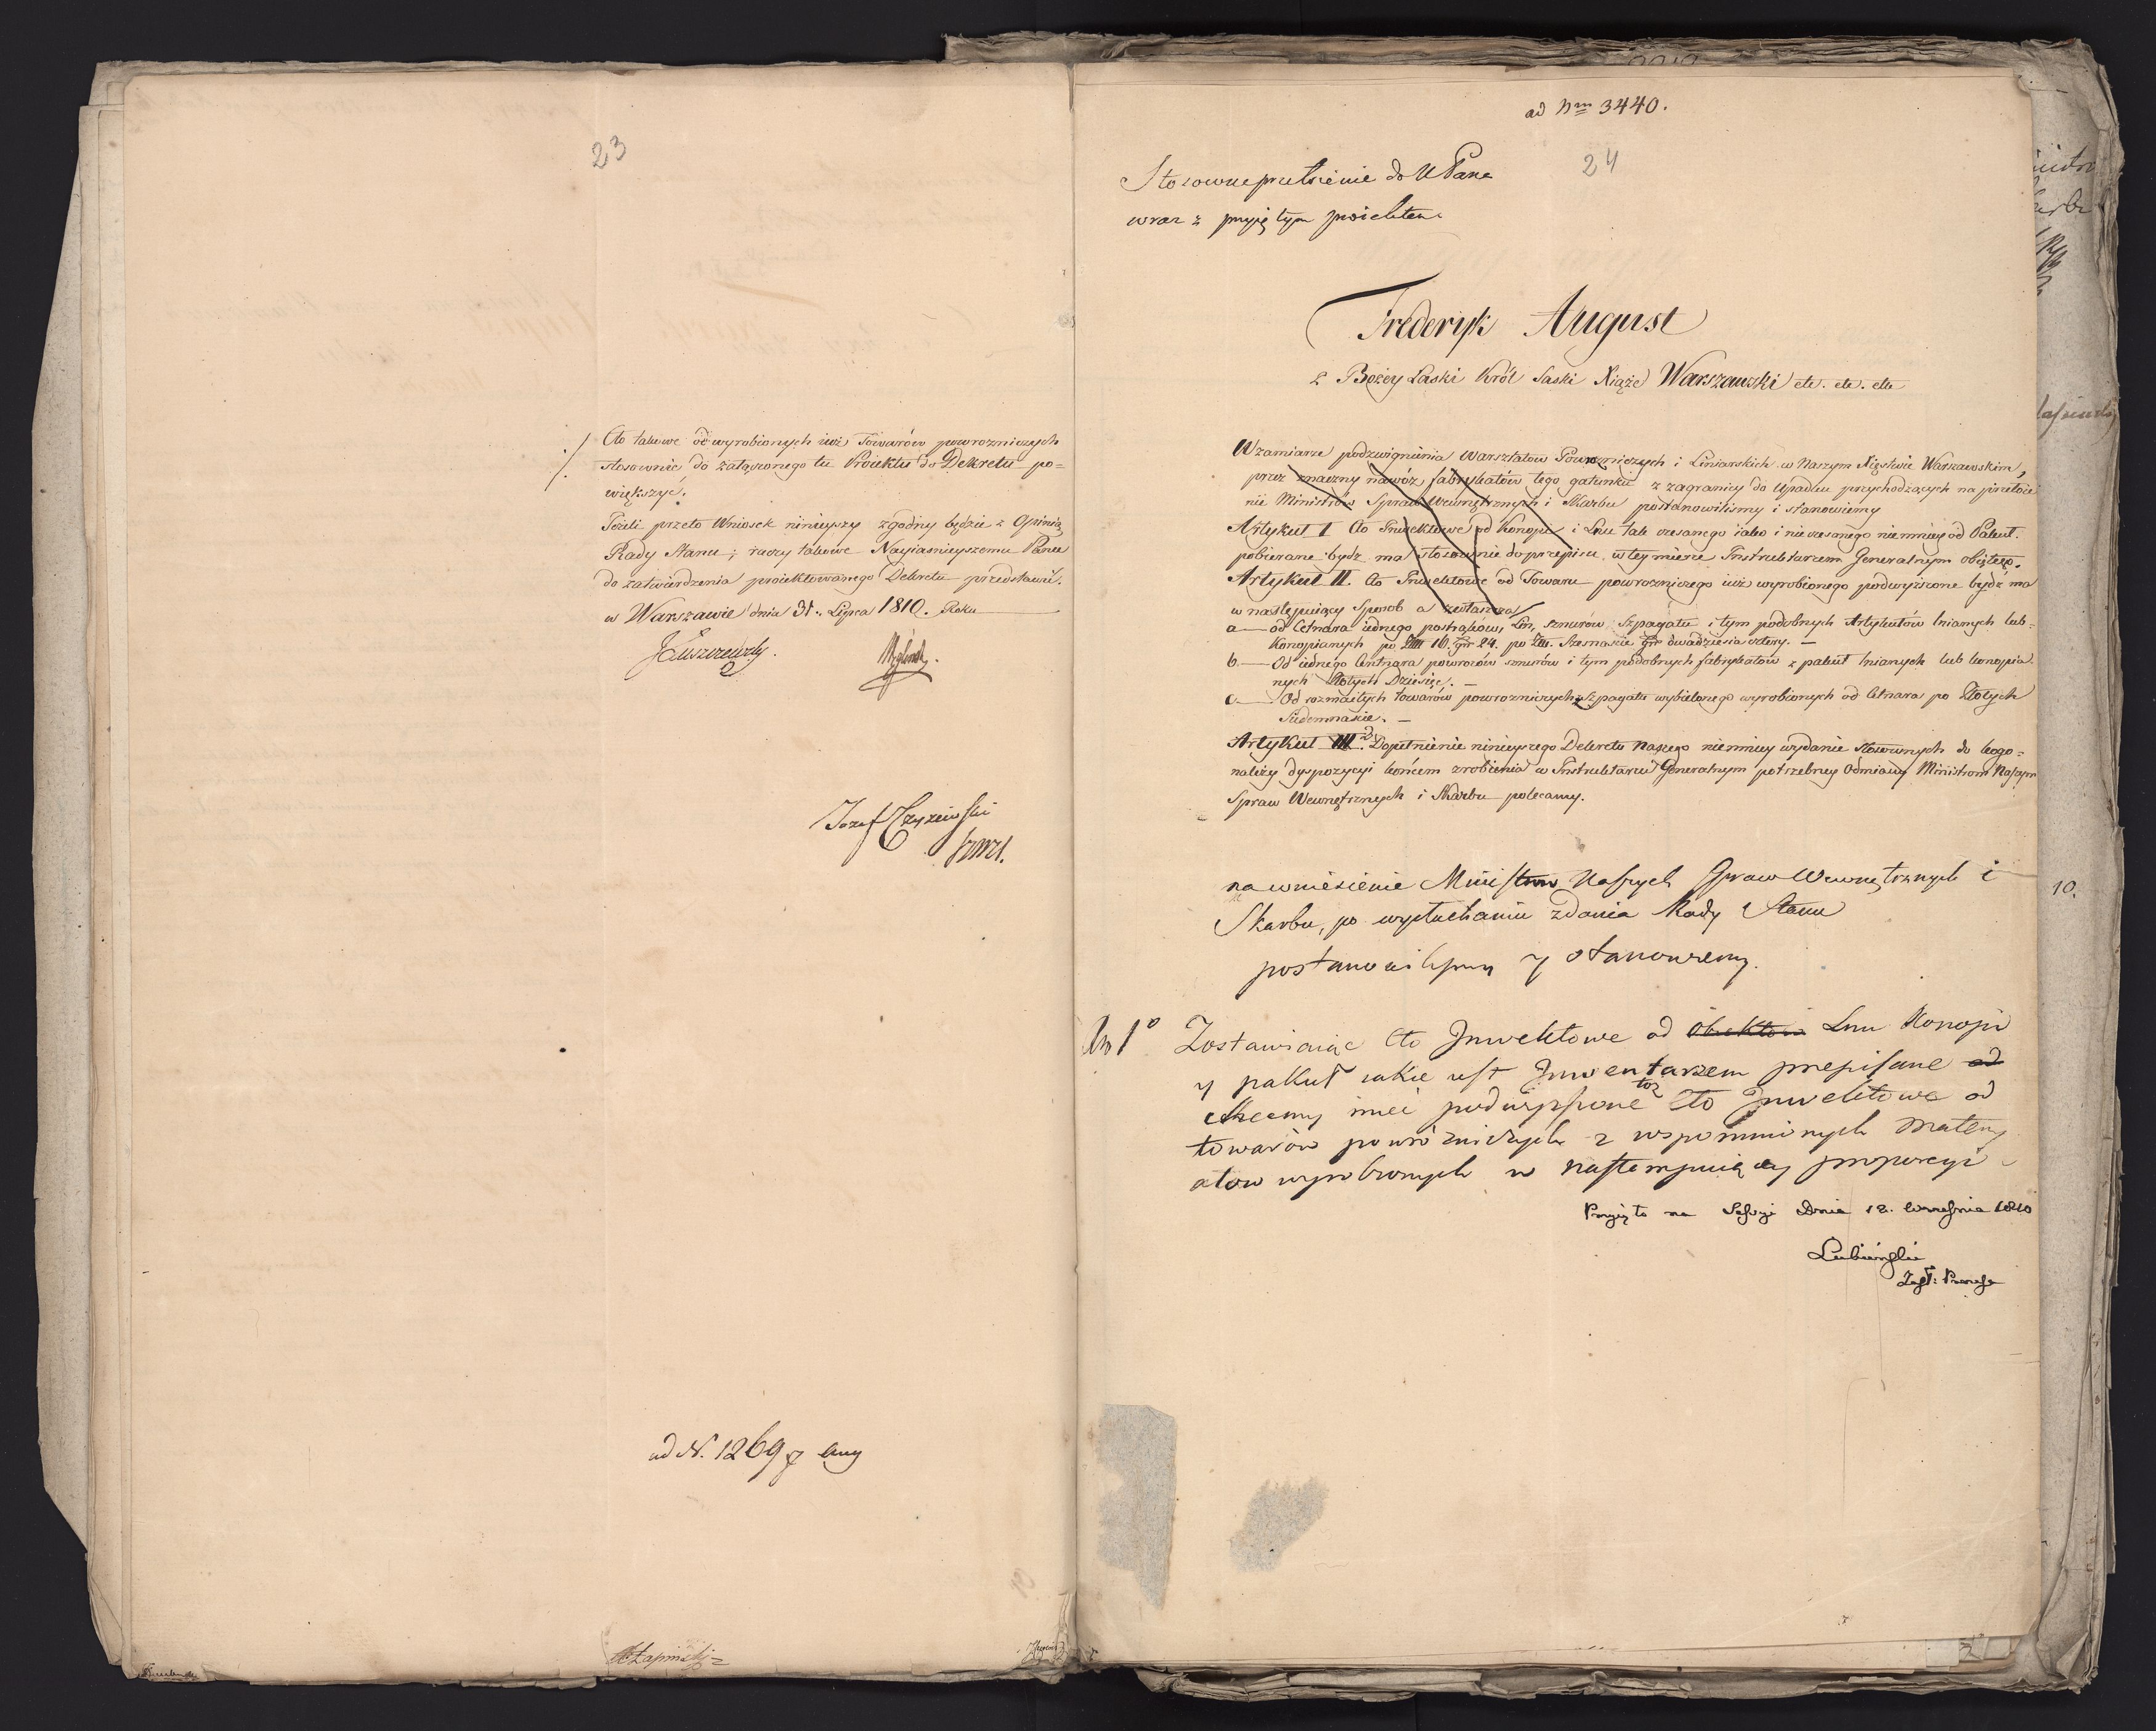 23
Cło takowe od wyrobionych iuż Towarów powrozniczych
stosownie do załączonego tu Proiektu do Dekretu po=
większyć.
Jeżeli przeto Wniosek ninieyszy zgodny będzie z Opinią
Rady Stanu; raczy takowe Nayiaśnieyszemu Panu
do zatwierdzenia proiektowanego Dekretu przedstawić.
w Warszawie dnia 31. Lipca 1810. Roku
Józef Czyżewski
ad N. 1269
ad Nm 3440.
24
Stosowne przełożenie do N Pana
wraz z przyiętym proiektem
Frederyk August
z Bożey Łaski Król Saski Xiąże Warszawski etc. etc. etc
W zamiarze podzwignienia Warsztatow Powrozniczych i Liniarskich w Naszym Xięstwie Warszawskim,
przez znaczny nawóz fabrykatów tego gatunku z zagranicy do Upadku przychodzących na przełoże
nie Ministrów Spraw Wewnętrznych i Skarbu postanowilismy i stanowiemy
Artykuł I Cło Inwektowe od Konopi i Lnu tak czesanego iako i nieczesanego niemniey od Pakuł.
pobierane bydz ma stosownie do przepisu w tey mierze Instruktarzem Generalnym obiętego.
Artykuł II. Cło Inwektowe od Towaru powrozniczego iuż wyrobionego podwyższone bydź ma
w następuiący Sposob a zwłaszcza
a — od Cetnara iednego postrąków, Lin, sznurów, Szpagatu i tym podobnych Artykułów lnianych lub=
Konopianych po Złł 16. gr 24. po Złł. Szesnaście gr dwadzieścia cztery. —
b. — Od iednego Centnara powrozów sznurów i tym podobnych fabrykatów z pakuł lnianych lub konopia
nych Złotych Dziesięć. —
c. — Od rozmaitych towarów powrozniczych z Szpagatu wybielonego wyrobionych od Cetnara po Złotych
Siedemnaście. —
Artykuł III. Dopełnienie ninieyszego Dekretu Naszego niemniey wydanie stosownych do tego=
należy dyspozycyi końcem zrobienia w Instruktarzu Generalnym potrzebney Odmiany Ministrom Naszym
Spraw Wewnętrznych i Skarbu polecamy.
na wniesienie Ministrow Naszych Spraw Wewnętrznych i
Skarbu, po wysłuchaniu zdania Rady Stanu
postanowilismy y stanowiemy.
Art 1o Zostawiaiąc Cło Inwektowe od Lnu Konopi
y pakuł iakie iest Inwentarzem przepisane od
chcemy mieć podwyższone toż Cło Inwektowe od
towarów powrozniczych z wspomnionych matery
ałow wyrobionych w nastempuiącey proporcyi
Przyięto na Sessyi Dnia 12. Września 1810
Łubieński
Zast: Prezesa
10.